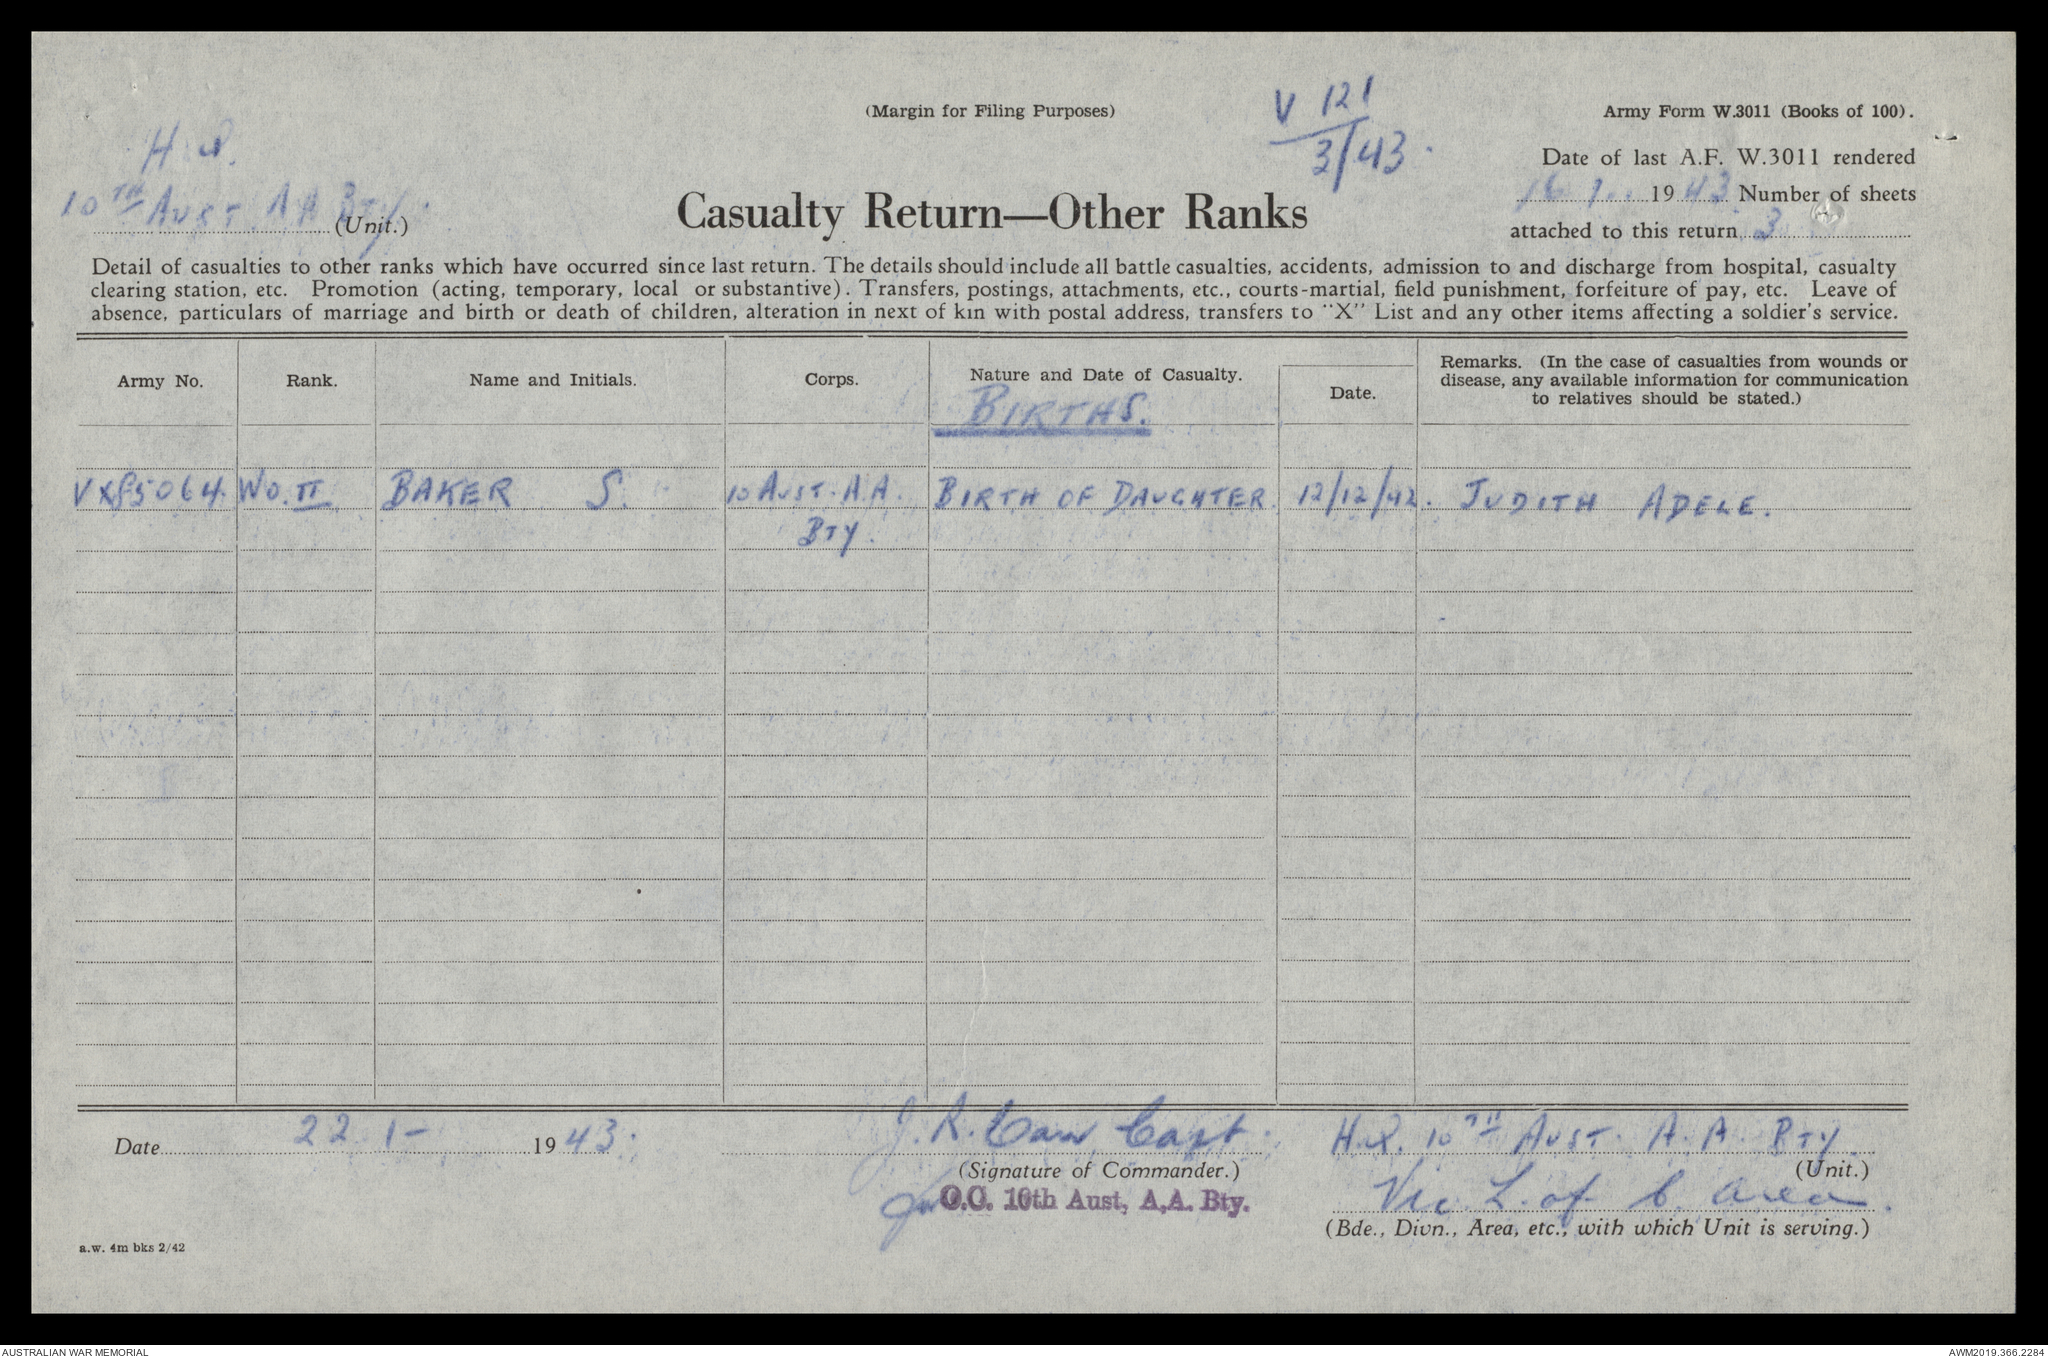 (Margin for Filing Purposes)
V 121
3/43.
Army Form W.3011 (Books of 100).
H.Q.
10TH AUST. A A BTY.
(Unit.)
Casualty Return—Other Ranks
Date of last A.F. W.3011 rendered
16. 1. 1943. Number of sheets
attached to this return 3
Detail of casualties to other ranks which have occurred since last return. The details should include all battle casualties, accidents, admission to and discharge from hospital, casualty
clearing station, etc. Promotion (acting, temporary, local or substantive). Transfers, postings, attachments, etc., courts-martial, field punishment, forfeiture of pay, etc. Leave of
absence, particulars of marriage and birth or death of children, alteration in next of kin with postal address, transfers to "X" List and any other items affecting a soldier's service.
Army No. Rank. Name and Initials. Corps. Nature and Date of Casualty. Date. Remarks. (In the case of casualties from wounds or
disease, any available information for communication
to relatives should be stated.)
BIRTHS.
VX85064. WO.II BAKER S. 10 AUST. A.A. BIRTH OF DAUGHTER 12/12/42. JUDITH ADELE.
BTY.
Date 22 1- 1943.
J. R. Capt.
(Signature of Commander.)
for O.C. 10th Aust, A.A. Bty.
H.Q. 10TH AUST. A. A. BTY
(Unit.)
Vic L. of C. Area.
(Bde., Divn., Area, etc., with which Unit is serving.)
a.w. 4m bks 2/42
AUSTRALIAN WAR MEMORIAL
AWM2019.366.2284